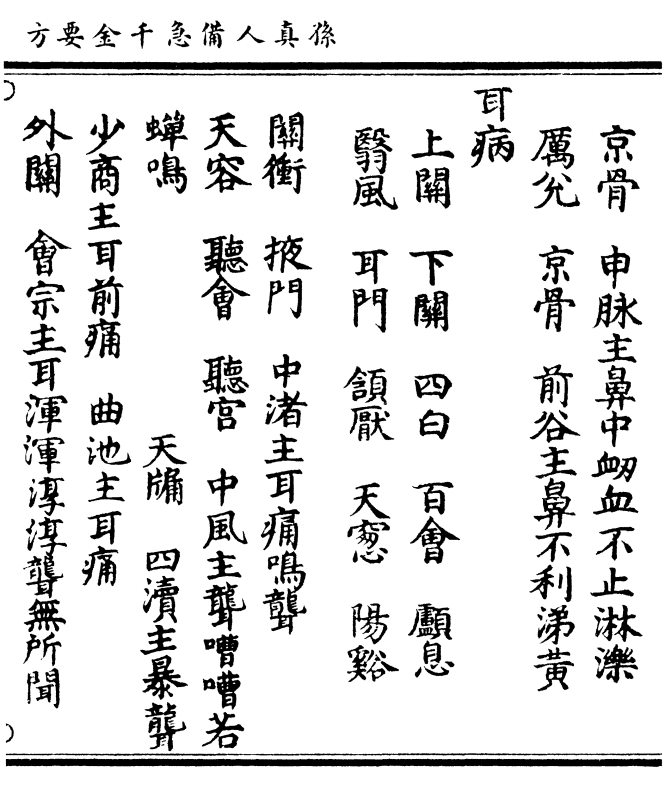 孫真人備急千金要方
京骨　申脉主鼻中衂血不止淋濼
厲兊　京骨　前谷主鼻不利涕黃
耳病
上關　下關　四白　百會　顱息
翳風　耳門　頷厭　天窻　陽谿
關衝　掖門　中渚主耳痛鳴聾
天容　聽會　聽宫　中風主聾嘈嘈若
蟬鳴　　　　　天牖　四瀆主暴聾
少商主耳前痛　曲池主耳痛
外關　會宗主耳渾渾淳淳聾無所聞